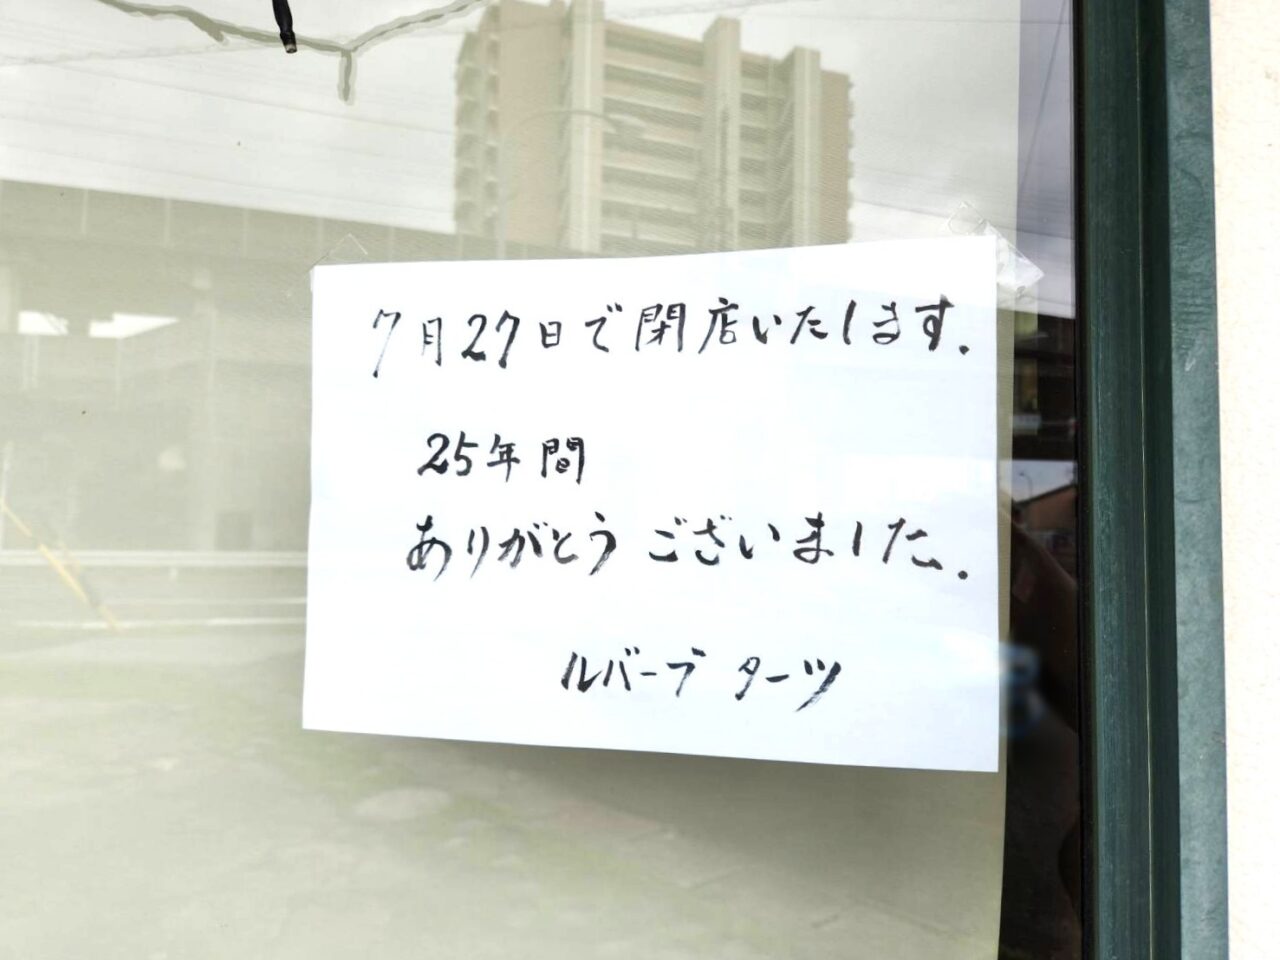 7月27日で閉店いたします.
25年間
ありがとうございました.
ルバーブ ターツ